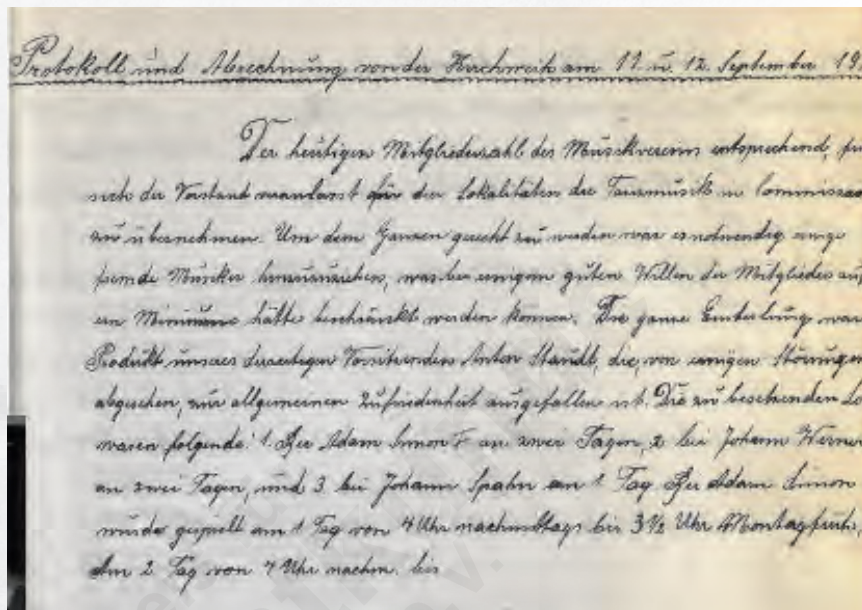 Protokoll und Abrechnung von der Kirchweih am 11. u. 12. September 19
Der heutigen Mitgliederzahl des Musikvereins entsprechend,
sich der Vorstand veranlasst für drei Lokalitäten die Tanzmusik in Commission
zu übernehmen. Um dem Ganzen gerecht zu werden war es notwendig einige
fremde Musiker hinzuzuziehen, was bei einigem guten Willen der Mitglieder auf
ein Minimum hätte beschränkt werden können. Die ganze Einteilung war
Produkt unseres derzeitigen Vorsitzenden Anton Staudt, die, von einigen Störungen
abgesehen, zur allgemeinen Zufriedenheit ausgefallen ist. Die zu besetzenden Lo
waren folgende: 1. Bei Adam Simon F an zwei Tagen, 2 bei Johann Werner
an zwei Tagen, und 3. bei Johann Spahn am 1 Tag. Bei Adam Simon
wurde gespielt am 1 Tag von 4 Uhr nachmittags bis 3½ Uhr Montagfrüh,
Am 2 Tag von 7 Uhr nachm. bis